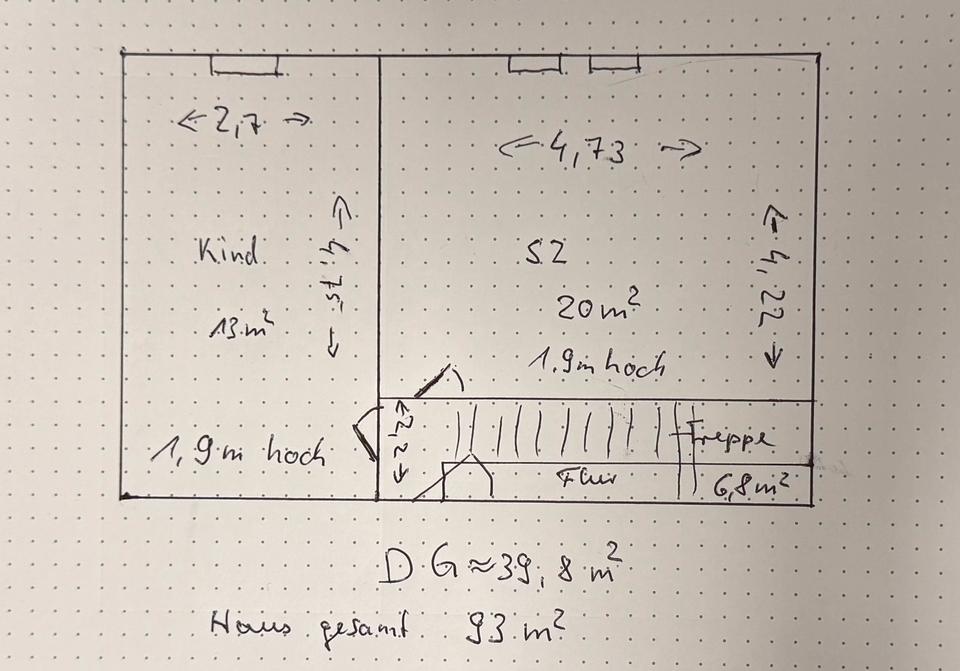 2,7
4,73
Kind
4,75
SZ
4,22
13 m²
20 m²
1,9m hoch
1,9 m hoch
2,2
Treppe
Flur
6,8 m²
DG ≈ 39,8 m²
Haus gesamt 93 m²